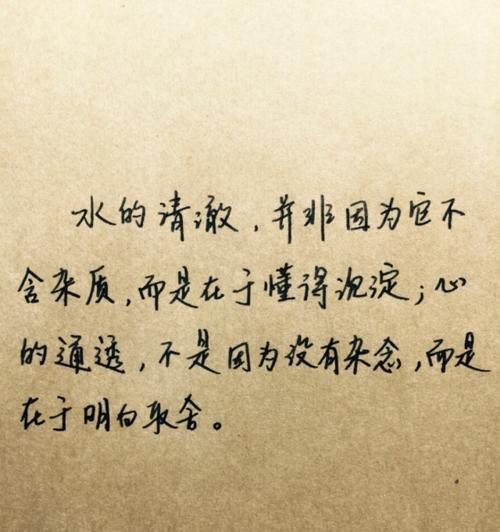 水的清澈，并非因为它不
含杂质，而是在于懂得沉淀；心
的通透，不是因为没有杂念，而是
在于明白取舍。